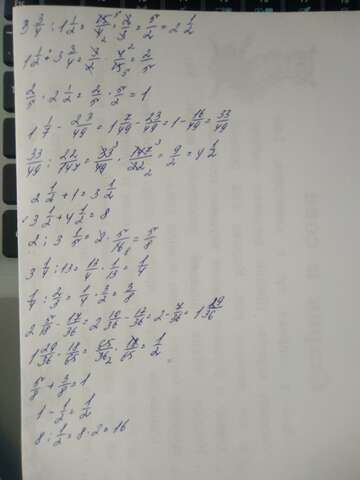 3 3/4 : 1 1/2 = 15/4 · 2/3 = 5/2 = 2 1/2
1 1/2 : 3 3/4 = 3/2 · 4/15 = 2/5
2/5 · 2 1/2 = 2/5 · 5/2 = 1
1 1/7 - 23/49 = 1 7/49 - 23/49 = 1 - 16/49 = 33/49
33/49 : 22/147 = 33/49 · 147/22 = 9/2 = 4 1/2
2 1/2 + 1 = 3 1/2
3 1/2 + 4 1/2 = 8
2 : 3 1/5 = 2 · 5/16 = 5/8
3 1/4 : 13 = 13/4 · 1/13 = 1/4
1/4 : 2/3 = 1/4 · 3/2 = 3/8
2 5/18 - 17/36 = 2 10/36 - 17/36 = 2 - 7/36 = 1 29/36
1 29/36 · 18/65 = 65/36 · 18/65 = 1/2
5/8 + 3/8 = 1
1 - 1/2 = 1/2
8 : 1/2 = 8 · 2 = 16